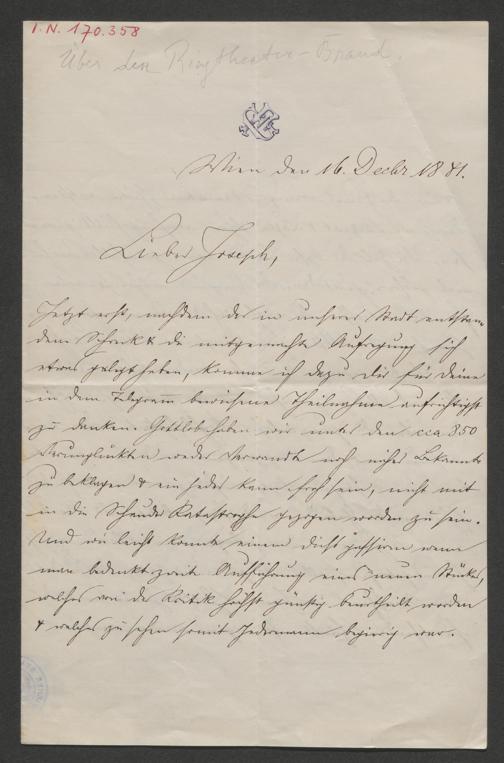 I.N. 170.358
Über den Ringtheater-Brand.
Wien den 16. Decbr 1881.
Lieber Joseph,
Jetzt erst, nachdem der in unserer Stadt entstan
dene Schreck & die mitgemachte Aufregung sich
etwas gelegt haben, komme ich dazu Dir für Deine
in dem Telegramm bewiesene Theilnahme aufrichtigst
zu danken. Gottlob haben wir unter den cca 850
Verunglückten weder Verwandte noch nähere Bekannte
zu beklagen & ein jeder kann froh sein, nicht mit
in die Schauder Katastrophe gezogen worden zu sein.
Und wie leicht konnte einem dieß passiren wenn
man bedenkt zweite Aufführung eines neuen Stückes,
welches von der Kritik höchst günstig beurtheilt worden
& welches zu sehen somit Jedermann begierig war.